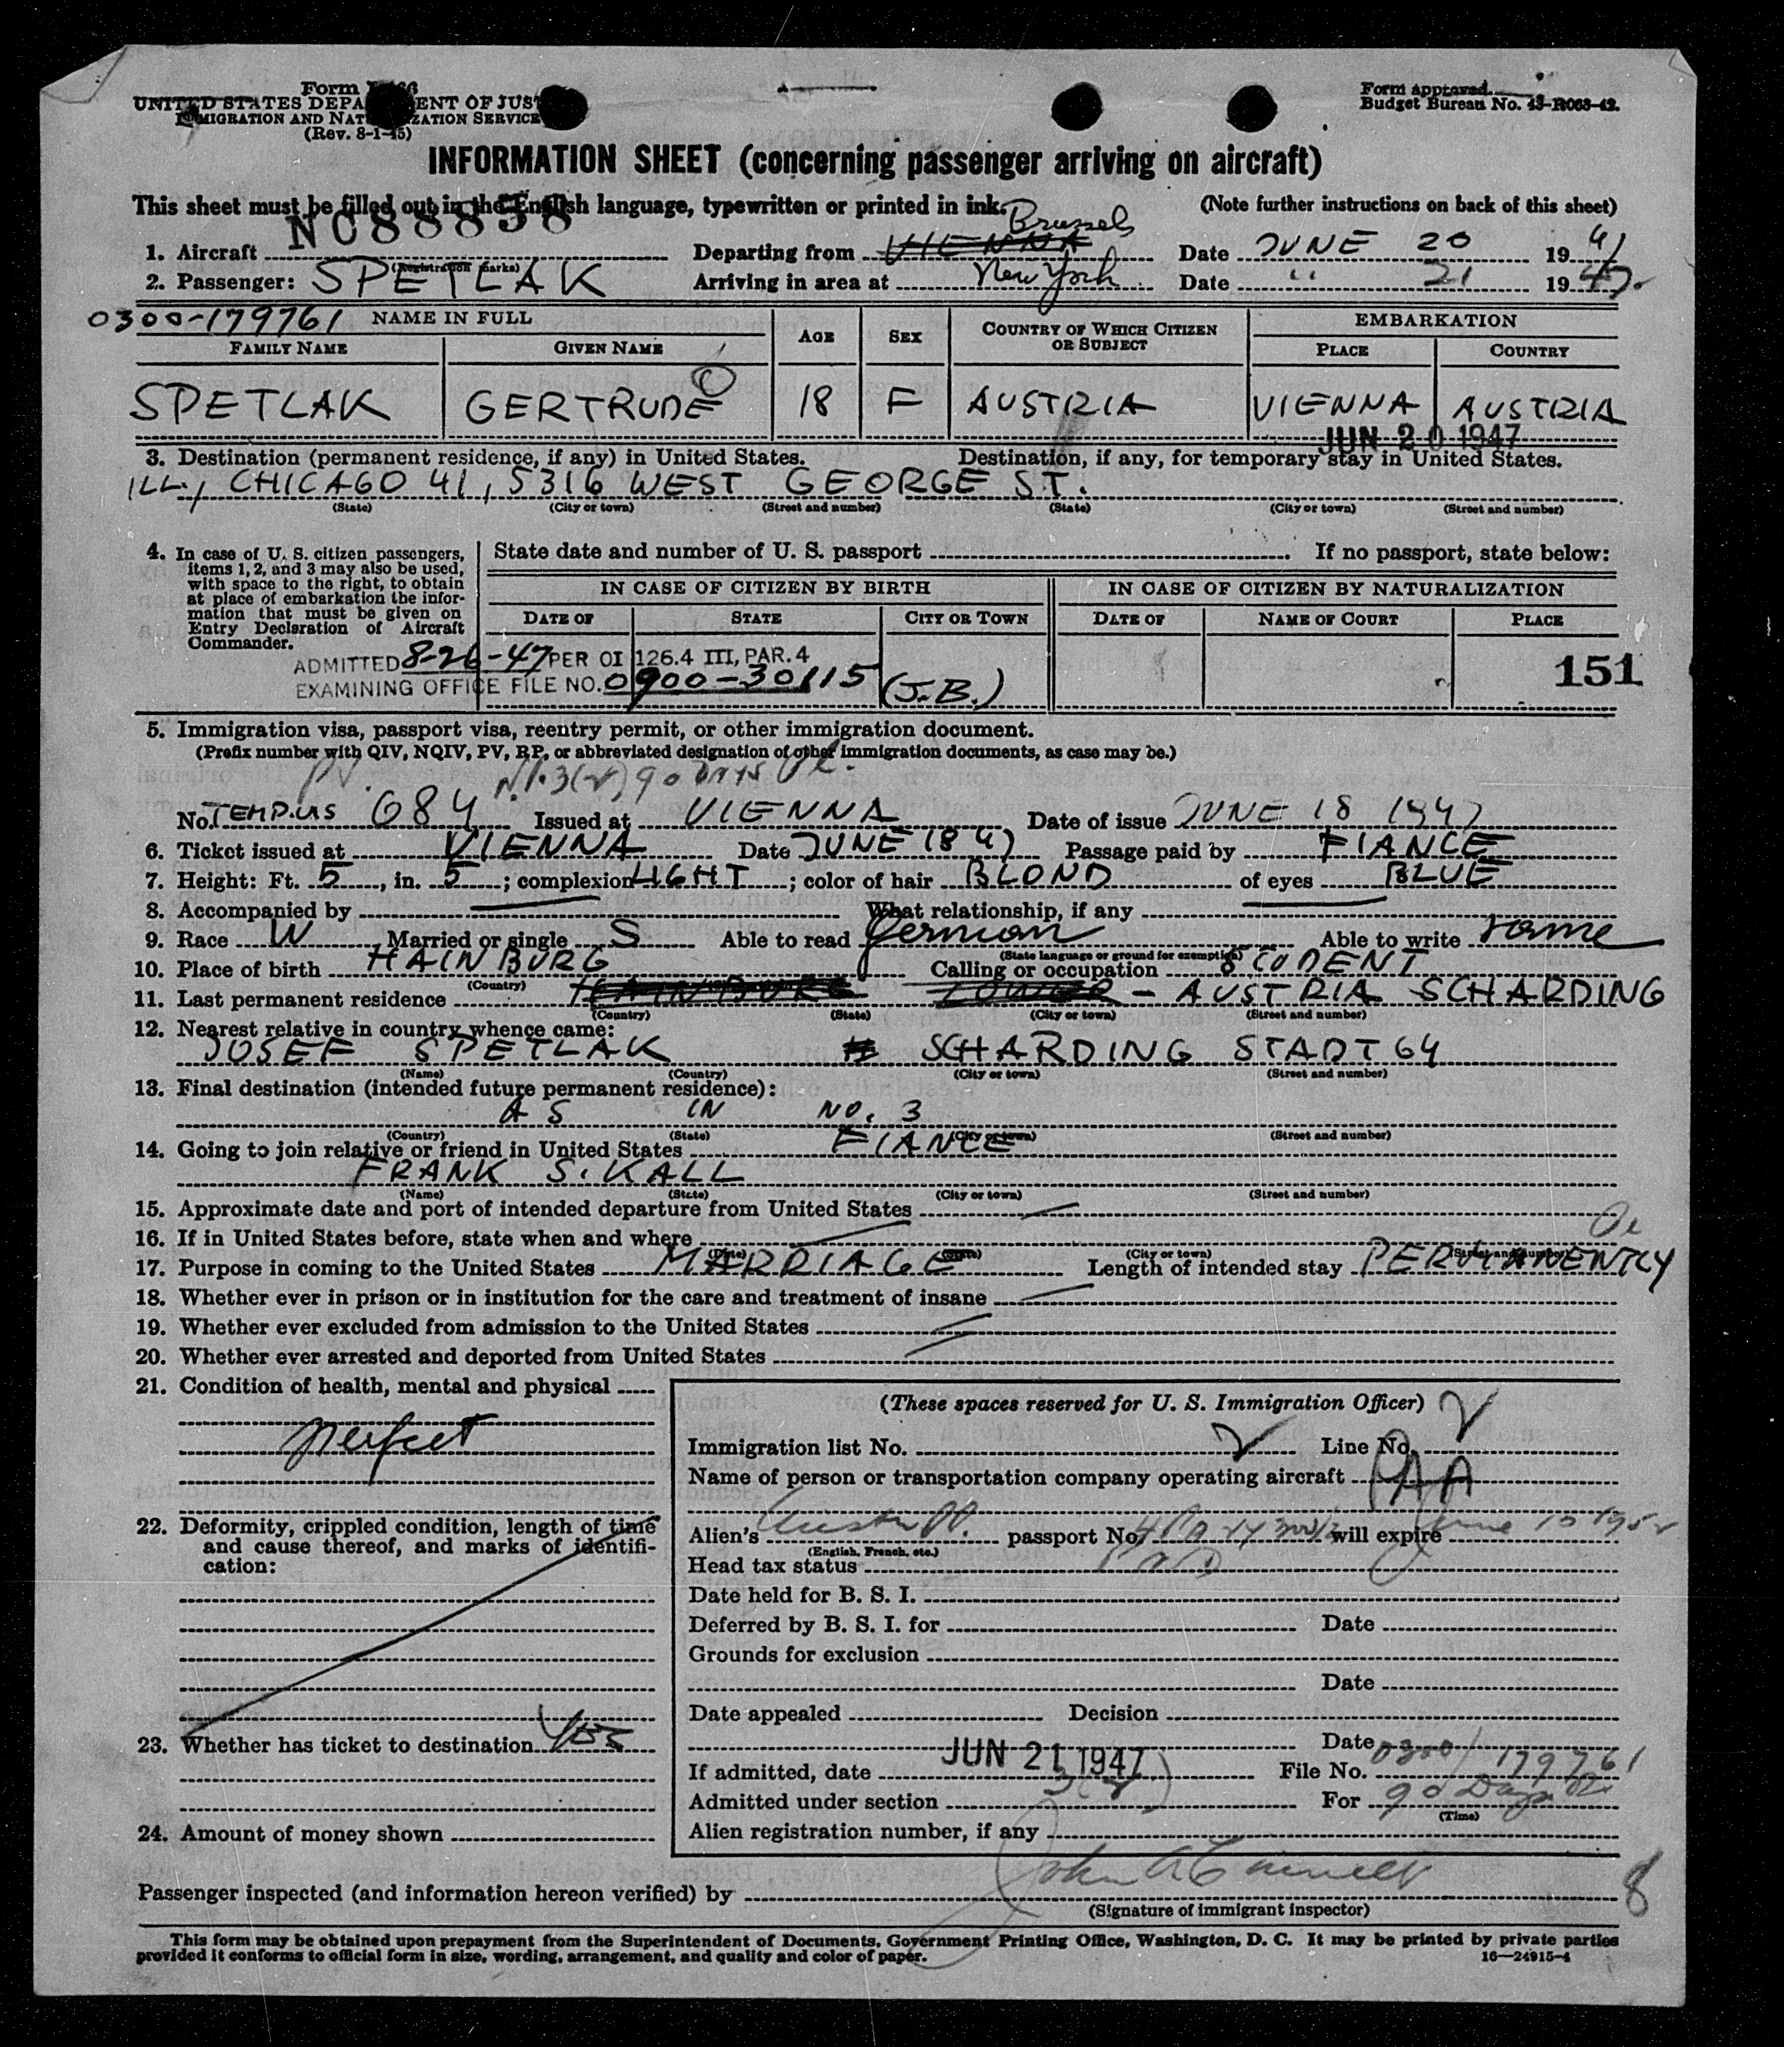 Form
UNITED STATES DEPARTMENT OF JUSTICE
IMMIGRATION AND NATURALIZATION SERVICE
(Rev. 8-1-45)
Form approved.
Budget Bureau No. 43-R063-42.
INFORMATION SHEET (concerning passenger arriving on aircraft)
This sheet must be filled out in the English language, typewritten or printed in ink. (Note further instructions on back of this sheet)
NC88858 Brussels
1. Aircraft Departing from VIENNA Date JUNE 20 1947
(Registration marks)
2. Passenger: SPETLAK Arriving in area at New York Date " 21 1947
0300-179761 NAME IN FULL AGE SEX COUNTRY OF WHICH CITIZEN OR SUBJECT EMBARKATION
FAMILY NAME GIVEN NAME PLACE COUNTRY
SPETLAK GERTRUDE 18 F AUSTRIA VIENNA AUSTRIA
JUN 20 1947
3. Destination (permanent residence, if any) in United States. Destination, if any, for temporary stay in United States.
ILL., CHICAGO 41, 5316 WEST GEORGE ST.
(State) (City or town) (Street and number) (State) (City or town) (Street and number)
4. In case of U. S. citizen passengers, items 1, 2, and 3 may also be used, with space to the right, to obtain at place of embarkation the information that must be given on Entry Declaration of Aircraft Commander.
State date and number of U. S. passport If no passport, state below:
IN CASE OF CITIZEN BY BIRTH IN CASE OF CITIZEN BY NATURALIZATION
DATE OF STATE CITY OR TOWN DATE OF NAME OF COURT PLACE
ADMITTED 8-26-47 PER OI 126.4 III, PAR. 4
EXAMINING OFFICE FILE NO. 0900-30115 (J.B.)
151
5. Immigration visa, passport visa, reentry permit, or other immigration document.
(Prefix number with QIV, NQIV, PV, RP, or abbreviated designation of other immigration documents, as case may be.)
PV. 3(2) 90 DAYS
No. TEMP.VIS 684 Issued at VIENNA Date of issue JUNE 18 1947
6. Ticket issued at VIENNA Date JUNE 18 47 Passage paid by FIANCE
7. Height: Ft. 5, in. 5; complexion LIGHT; color of hair BLOND of eyes BLUE
8. Accompanied by What relationship, if any
9. Race W Married or single S Able to read German Able to write same
(State language or ground for exemption)
10. Place of birth HAINBURG Calling or occupation STUDENT
(Country)
11. Last permanent residence HAINBURG LOWER - AUSTRIA SCHARDING
(Country) (State) (City or town) (Street and number)
12. Nearest relative in country whence came:
JOSEF SPETLAK SCHARDING STADT 64
(Name) (Country) (City or town) (Street and number)
13. Final destination (intended future permanent residence):
AS IN NO. 3
(Country) (State) (City or town) (Street and number)
14. Going to join relative or friend in United States FIANCE
FRANK S. KALL
(Name) (State) (City or town) (Street and number)
15. Approximate date and port of intended departure from United States
16. If in United States before, state when and where
(Date) (State) (City or town) (Street and number)
17. Purpose in coming to the United States MARRIAGE Length of intended stay PERMANENTLY
18. Whether ever in prison or in institution for the care and treatment of insane
19. Whether ever excluded from admission to the United States
20. Whether ever arrested and deported from United States
21. Condition of health, mental and physical
perfect
22. Deformity, crippled condition, length of time and cause thereof, and marks of identification:
23. Whether has ticket to destination yes
24. Amount of money shown
(These spaces reserved for U. S. Immigration Officer)
Immigration list No. Line No.
Name of person or transportation company operating aircraft PAA
Alien's passport No. will expire June 10 1952
(English, French, etc.)
Head tax status
Date held for B. S. I.
Deferred by B. S. I. for Date
Grounds for exclusion
Date
Date appealed Decision
Date
If admitted, date JUN 21 1947 File No. 0300/179761
Admitted under section 3(2) For 90 Days
(Time)
Alien registration number, if any
Passenger inspected (and information hereon verified) by
(Signature of immigrant inspector)
8
This form may be obtained upon prepayment from the Superintendent of Documents, Government Printing Office, Washington, D. C. It may be printed by private parties
provided it conforms to official form in size, wording, arrangement, and quality and color of paper. 16—24915-4